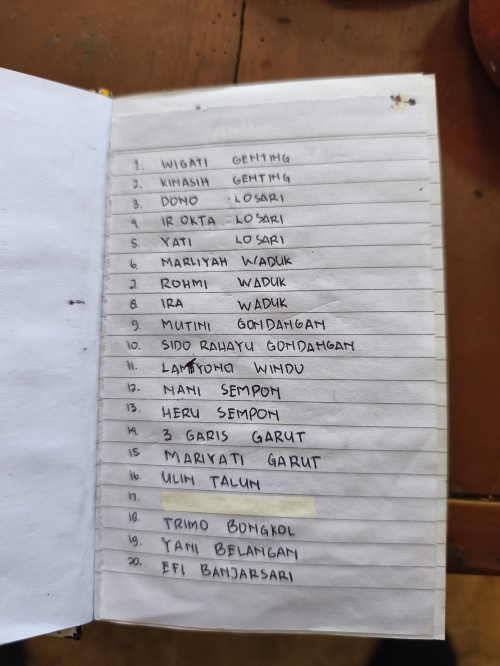 1. WIGATI GENTING
2. KINASIH GENTING
3. DONO LOSARI
4. IR OKTA LOSARI
5. YATI LOSARI
6. MARLIYAH WADUK
7. ROHMI WADUK
8. IRA WADUK
9. MUTINI GONDANGAN
10. SIDO RAHAYU GONDANGAN
11. LAMIYONO WINDU
12. NANI SEMPON
13. HERU SEMPON
14. 3 GARIS GARUT
15. MARIYATI GARUT
16. ULIN TALUN
17.
18. TRIMO BONGKOL
19. YANI BELANGAN
20. EFI BANJARSARI